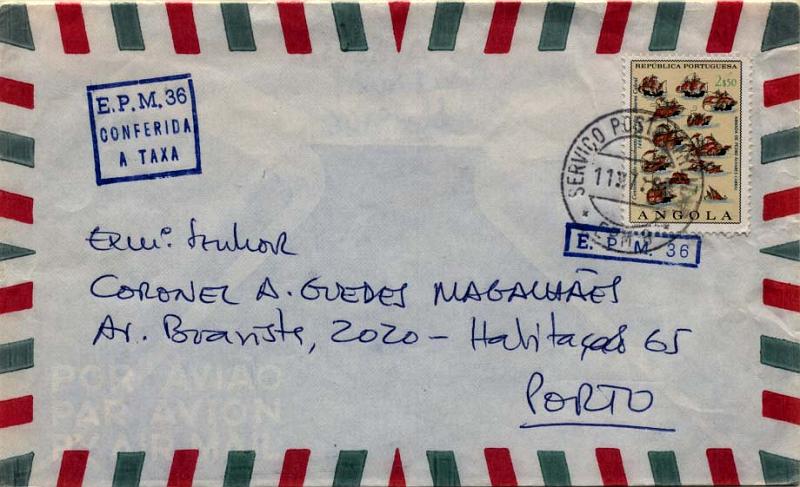 E.P.M. 36
CONFERIDA
A TAXA
REPÚBLICA PORTUGUESA
2$50
ANGOLA
SERVIÇO POSTAL MILITAR
E. P. M. 36
Exmº. Senhor
CORONEL A. GUEDES MAGALHÃES
Av. Boavista, 2020 - Habitação 65
PORTO
POR AVIÃO
PAR AVION
BY AIR MAIL